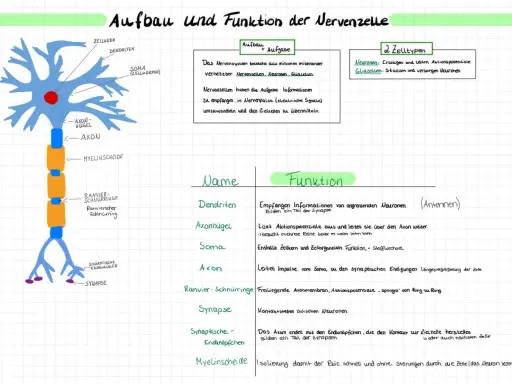 Aufbau und Funktion der Nervenzelle
ZELLKERN
DENDRITEN
SOMA
(ZELLKÖRPER)
AXON-
HÜGEL
AXON
MYELINSCHEIDE
RANVIER-
SCHNÜRRINGE
Ranvierscher
Schnürring
SYNAPTISCHE
ENDKNÖPFCHEN
SYNAPSE
Aufbau
+ Aufgabe
Das Nervensystem besteht aus Millionen miteinander
vernetzter Nervenzellen, Neuronen, Gliazellen
Nervenzellen haben die Aufgabe Informationen
zu empfangen, in Nervenimpulse (elektrische Signale)
umzuwandeln und den Zielzellen zu übermitteln.
2 Zelltypen
Neuronen: Erzeugen und leiten Aktionspotenziale
Gliazellen: Stützen und versorgen Neuronen
Name
Funktion
Dendriten
Empfangen Informationen von angrenzenden Neuronen (Antennen)
Bilden ein Teil der Synapse
Axonhügel
Löst Aktionspotenziale aus und leitet sie über den Axon weiter
Soma
Enthält Zellkern und Zellorganellen. Funktion: Stoffwechsel
Axon
Leitet Impulse vom Soma zu den synaptischen Endigungen
Ranvier-Schnürringe
Freiliegende Axonmembran, Aktionspotenziale "springen" von Ring zu Ring
Synapse
Kontaktstellen zwischen Neuronen
Synaptische-
Endknöpfchen
Das Axon endet mit den Endknöpfchen, die den Kontakt zur Zielzelle herstellen
Bilden ein Teil der Synapsen
Myelinscheide
Isolierung damit der Reiz schnell und ohne Störungen durch die Zelle/das Neuron